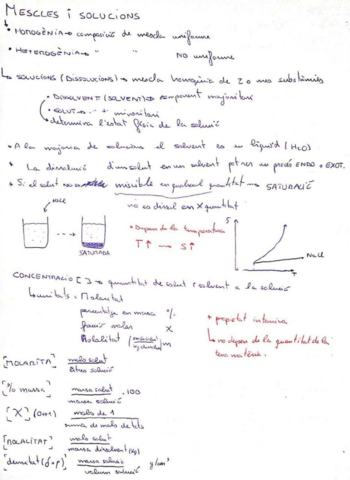 MESCLES i SOLUCIONS
• HOMOGÈNIA → composició de mescla uniforme
• HETEROGÈNIA → " " NO uniforme
↳ SOLUCIONS (DISSOLUCIONS) → mescla homogènia de 2 o més substàncies
• DISSOLVENT (SOLVENT) → component majoritari
• SOLUT → " + minoritari
• determina l'estat físic de la solució
• A la majoria de solucions el solvent és un líquid (H2O)
• La dissolució d'un solut en un solvent pot ser un procés ENDO o EXOT.
• Si el solut no és miscible en qualsevol quantitat → SATURACIÓ
no es dissol en X quantitat
NaCl
SATURADA
• Depen de la temperatura
T↑ → S↑
S
NaCl
T
CONCENTRACIÓ [ ] → quantitat de solut i solvent a la solució
↳ unitats: Molaritat
percentatge en massa %
fracció molar X
Molalitat m
* propietat intensiva
↳ no depen de la quantitat de la
teva matèria.
[MOLARITAT] mols solut
litres solució
[% massa] massa solut · 100
massa solució
[X] (0↔1) mols de 1
suma de mols de tots
[MOLALITAT] mols solut
massa dissolvent (Kg)
[densitat (d o ρ)] massa solució g/cm³
volum solució